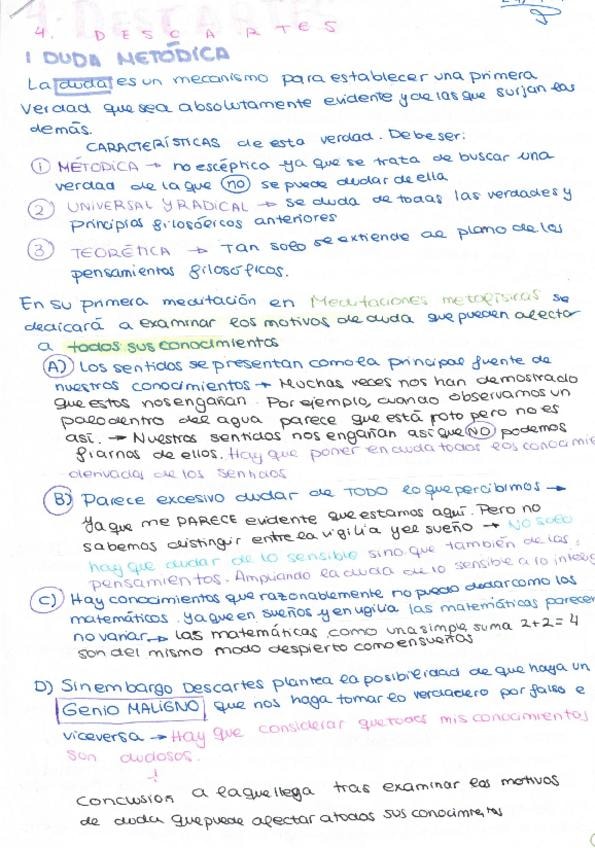 4. DESCARTES
1 DUDA METÓDICA
La duda es un mecanismo para establecer una primera
verdad que sea absolutamente evidente y de las que surjan las
demás.
CARACTERÍSTICAS de esta verdad. Debe ser:
1 METÓDICA → no escéptica ya que se trata de buscar una
verdad de la que no se puede dudar de ella
2 UNIVERSAL Y RADICAL → se duda de todas las verdades y
principios filosóficos anteriores
3 TEORÉTICA → Tan solo se extiende al plano de los
pensamientos filosóficos.
En su primera meditación en Meditaciones metafísicas se
dedicará a examinar los motivos de duda que pueden afectar
a todos sus conocimientos
A) Los sentidos se presentan como la principal fuente de
nuestros conocimientos → Muchas veces nos han demostrado
que estos nos engañan. Por ejemplo, cuando observamos un
palo dentro del agua parece que está roto pero no es
así. → Nuestros sentidos nos engañan así que NO podemos
fiarnos de ellos. Hay que poner en duda todos los conocimie
derivados de los sentidos
B) Parece excesivo dudar de TODO lo que percibimos →
ya que me PARECE evidente que estamos aquí. Pero no
sabemos distinguir entre la vigilia y el sueño → No solo
hay que dudar de lo sensible sino que también de los
pensamientos. Ampliando la duda de lo sensible a lo intelig
C) Hay conocimientos que razonablemente no puedo dudar como los
matemáticos. ya que en sueños y en vigilia las matemáticas parecen
no variar → las matemáticas como una simple suma 2+2=4
son del mismo modo despierto como en sueños
D) Sin embargo Descartes plantea la posibilidad de que haya un
Genio MALIGNO que nos haga tomar lo verdadero por falso e
viceversa → Hay que considerar que todos mis conocimientos
son dudosos.
↓
Conclusión a la que llega tras examinar los motivos
de duda que puede afectar a todos sus conocimientos